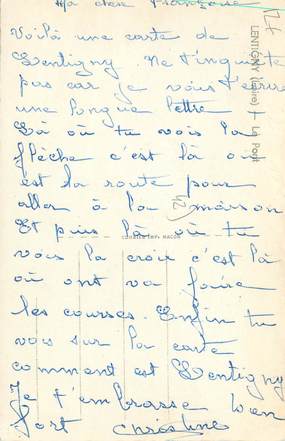 Ma chère Françoise
Voilà une carte de
Lentigny. Ne t'inquiète
pas car je vais t'écrire
une longue lettre
Là où tu vois la
flèche c'est là où
est la route pour
aller à la maison
Et puis là où tu
vois la croix c'est là
où ont va faire
les courses. Enfin tu
vois sur la carte
comment est Lentigny
Je t'embrasse bien
fort Christine
LENTIGNY (Loire) Le Pont
MACON
42